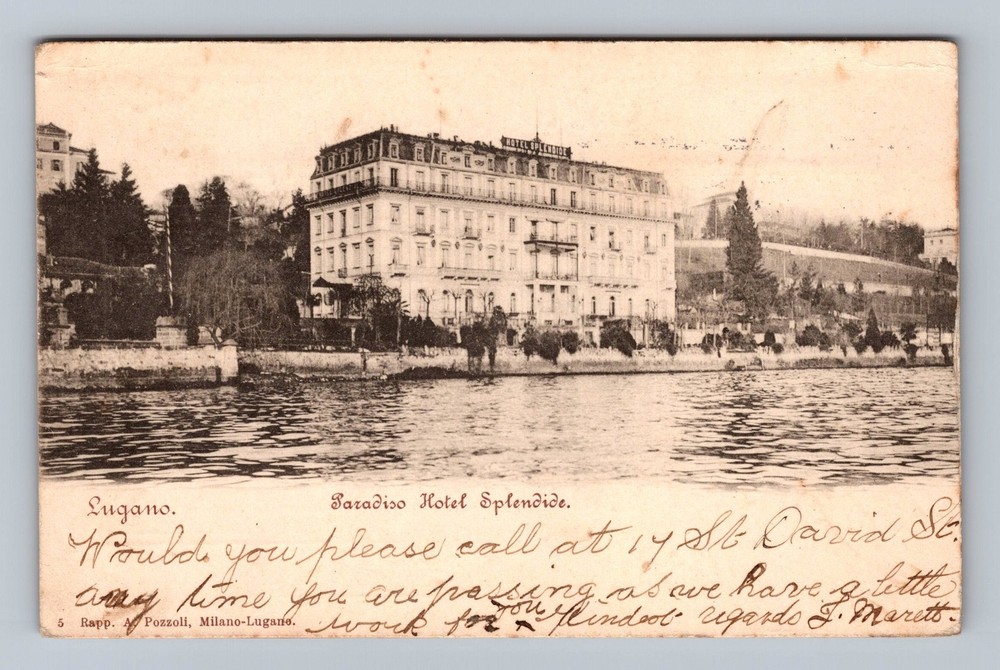 HOTEL SPLENDIDE
Lugano.
Paradiso Hotel Splendide.
Would you please call at 17 St David St.
any time you are passing as we have a little
work for you Kindest regards J. Marett.
5 Rapp. A. Pozzoli, Milano-Lugano.